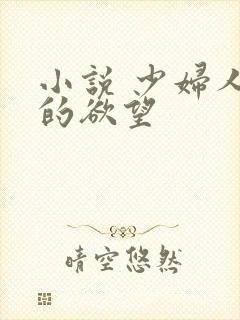 小説 少婦人
的欲望
晴空悠然